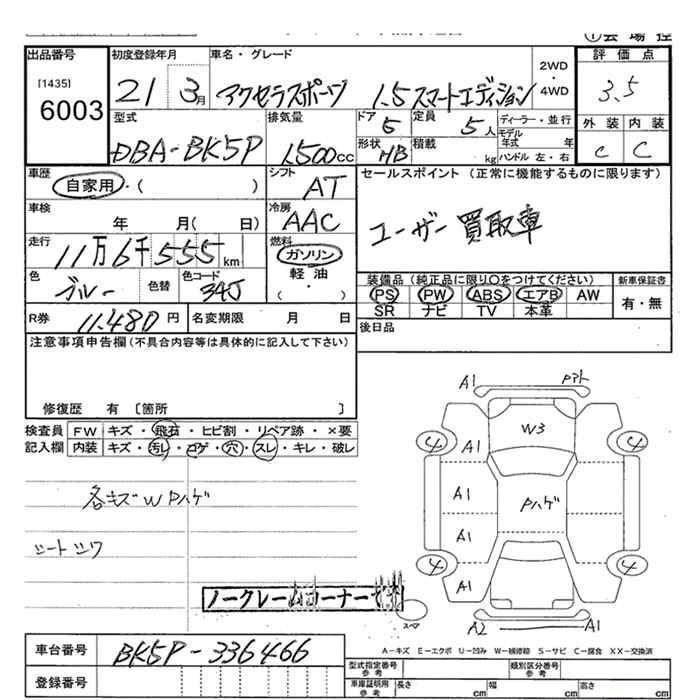 ①会場控
出品番号
[1435]
6003
初度登録年月
21 3月
車名・グレード
アクセラスポーツ 1.5 スマートエディション
2WD
・
4WD
評価点
3.5
外装 内装
C C
型式
DBA-BK5P
排気量
1500cc
ドア
5
定員
5人
形状
HB
積載
kg
ディーラー・並行
モデル
年式 年
ハンドル 左・右
車歴
自家用・( )
シフト
AT
車検
年 月( 日)
冷房
AAC
走行
11万6千555km
燃料
ガソリン
軽油
( ・ )
色
ブルー
色替
色コード
34J
R券 11,480円
名変期限 月 日
セールスポイント (正常に機能するものに限ります)
ユーザー買取車
装備品 (純正品に限り○をつけてください)
PS PW ABS エアB AW
SR ナビ TV 本革
新車保証書
有・無
後日品
注意事項申告欄(不具合内容等は具体的に記入して下さい)
修復歴 有 [箇所 ]
検査員
記入欄
FW キズ・飛石・ヒビ割・リペア跡・×要
内装 キズ・汚レ・コゲ・穴・スレ・キレ・破レ
各キズW Pハゲ
シートシワ
ノークレームコーナーです
A1
W3
4 4
A1
A1
Pハゲ
A1
4 4
A1
スペア
A2 A1
A-キズ E-エクボ U-凹み W-補修跡 S-サビ C-腐食 XX-交換済
車台番号
BK5P-336466
登録番号
型式指定番号
参考
類別区分番号
参考
車庫証明用
参考
長さ cm
幅 cm
高さ cm